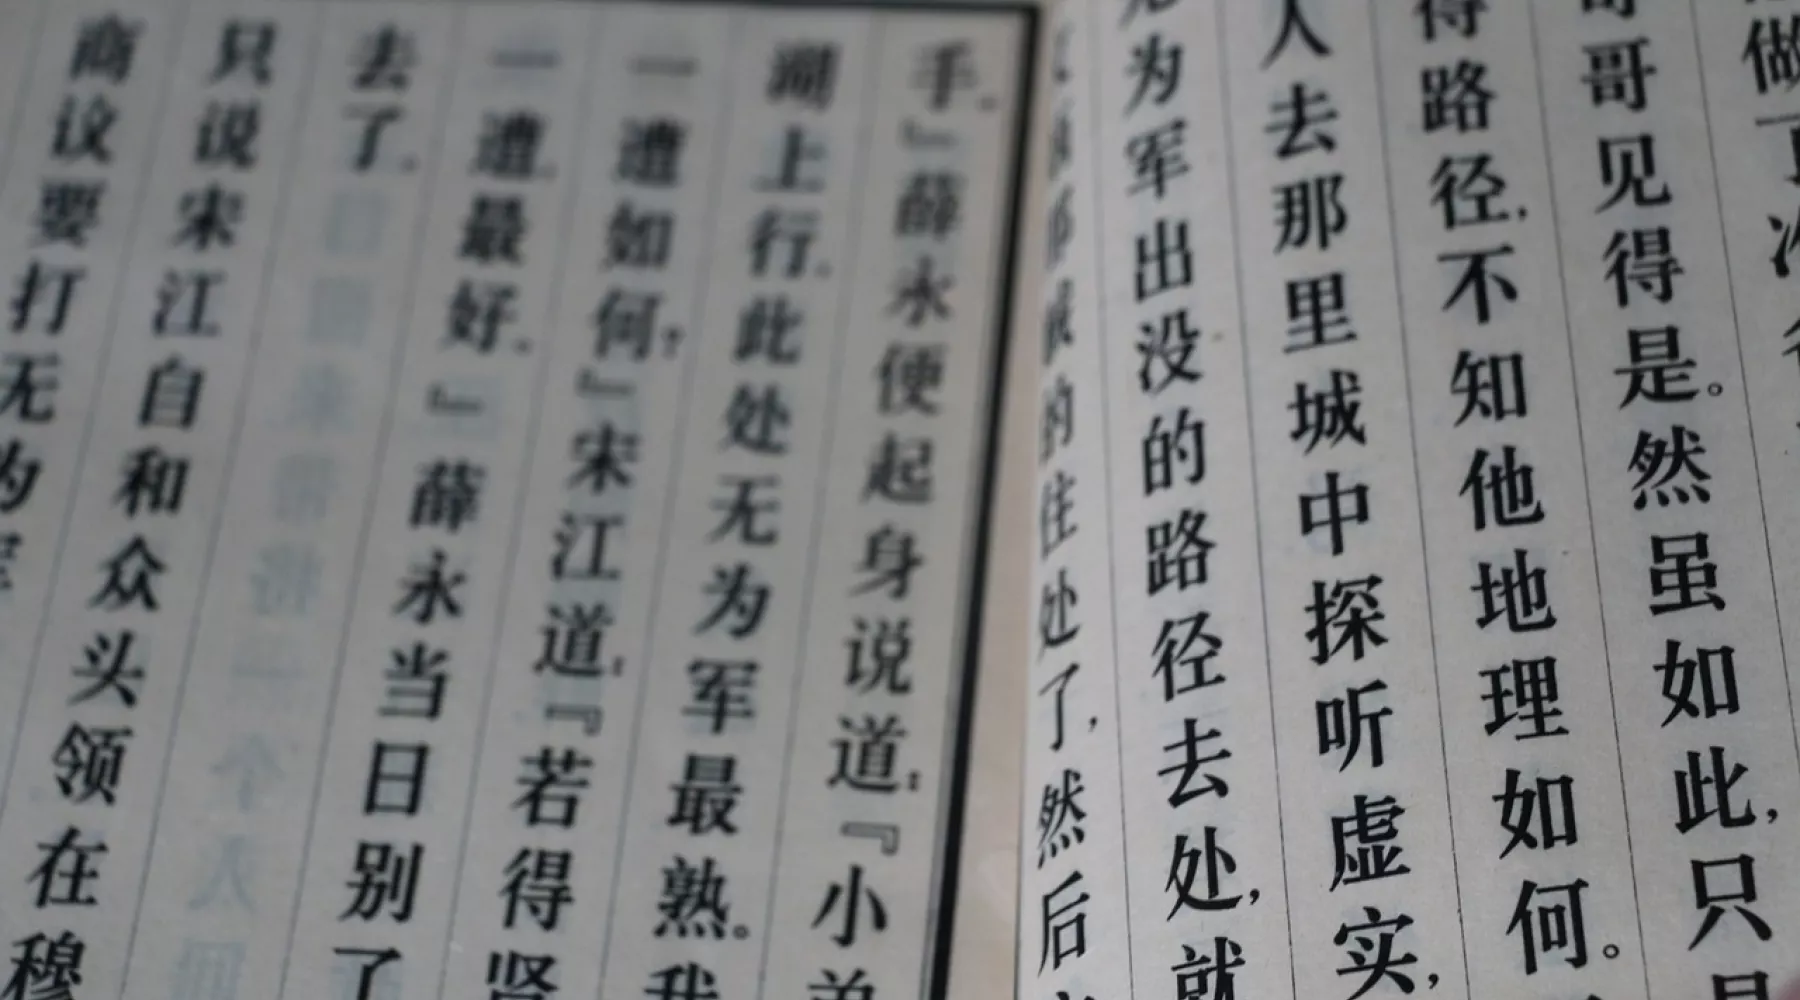 做了
哥见得是。然虽如此,只是
得路径,不知他地理如何。
人去那里城中探听虚实,
无为军出没的路径去处,就
的住处了,然后
手。』薛永便起身说道:『小弟
湖上行。此处无为军最熟。我
一遭如何?』宋江道:『若得贤
一遭最好。』薛永当日别了
去了。
只说宋江自和众头领在穆
商议要打无为军